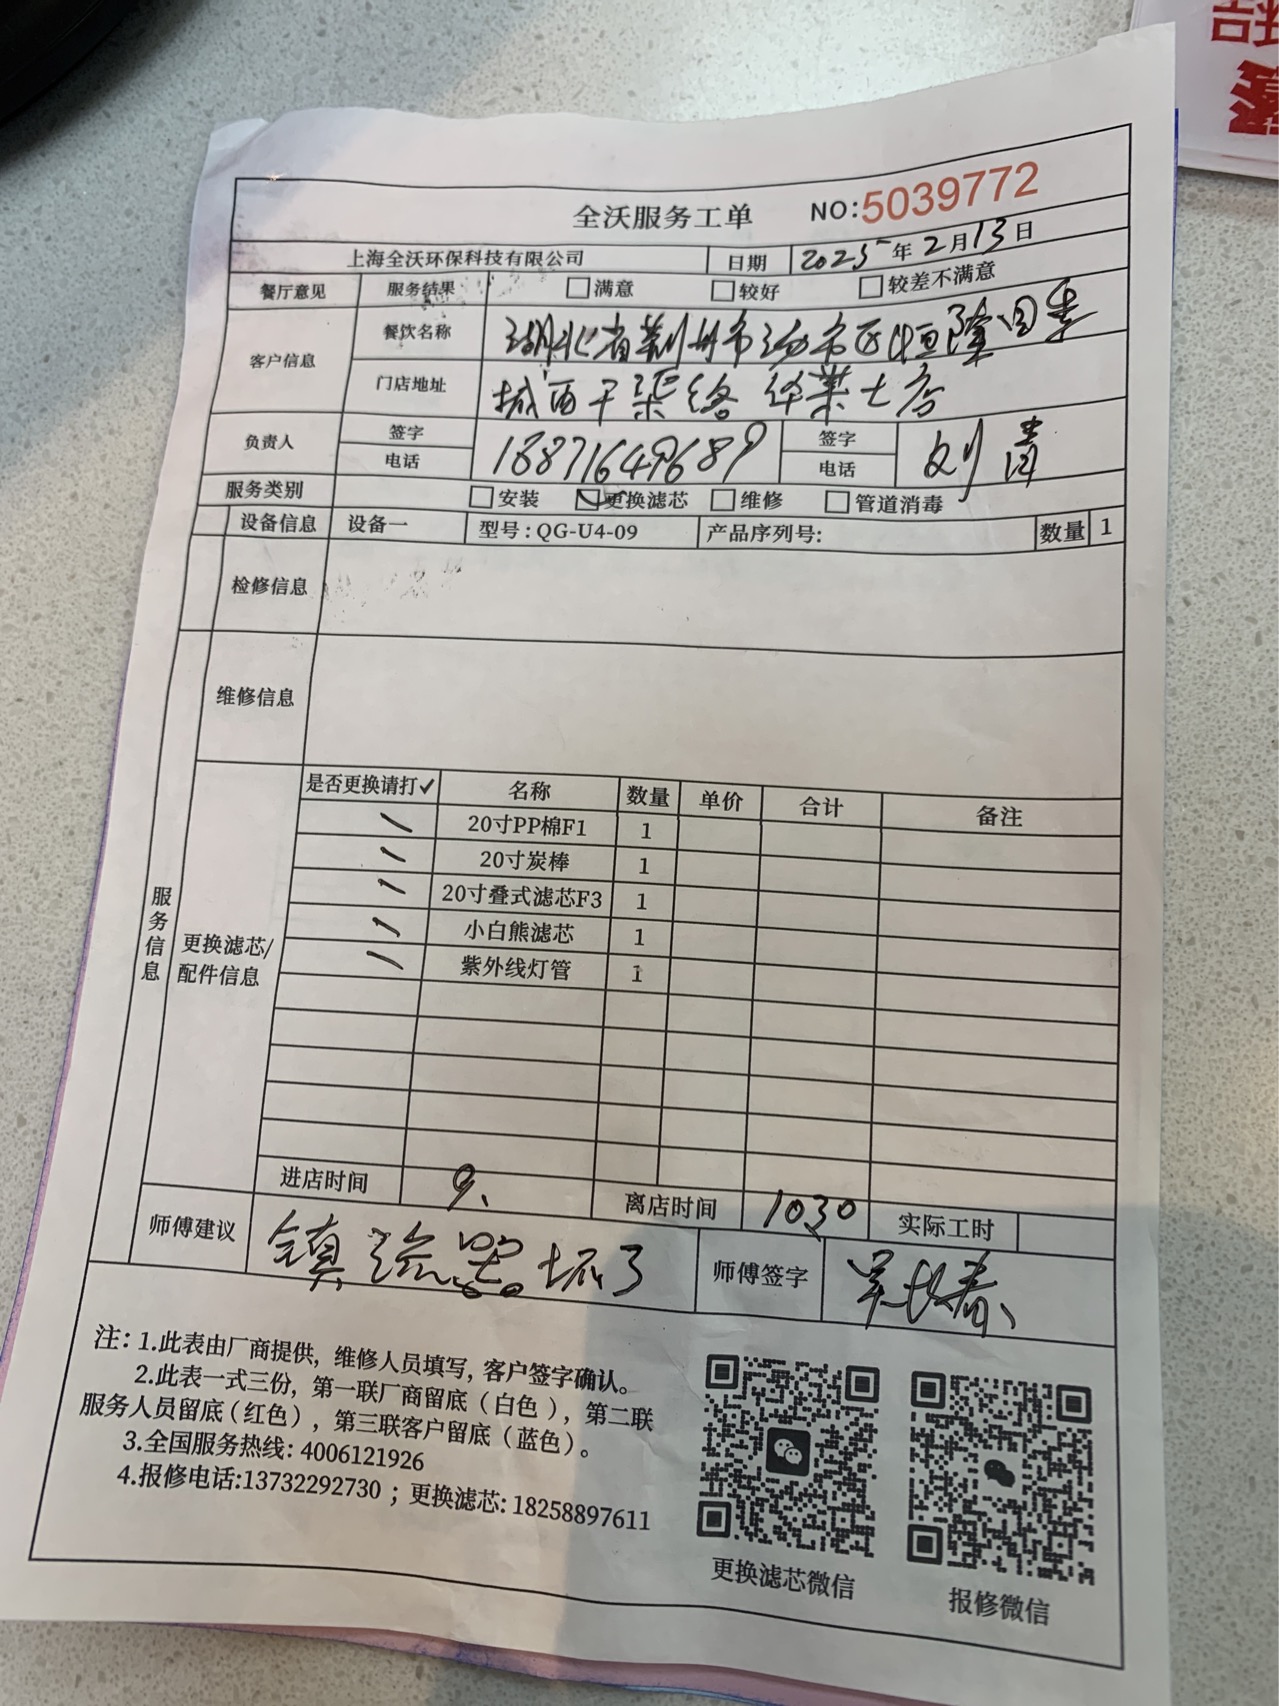 全沃服务工单 NO:5039772
上海全沃环保科技有限公司 日期 2025年2月13日
餐厅意见 服务结果 满意 较好 较差不满意
客户信息 餐饮名称 湖北省荆州市沙市区恒隆四季
门店地址 城西干渠络 华莱士店
负责人 签字 电话 18871649689 签字 电话 刘清
服务类别 安装 更换滤芯 维修 管道消毒
设备信息 设备一 型号:QG-U4-09 产品序列号: 数量 1
检修信息
维修信息
服务信息
更换滤芯/
配件信息
是否更换请打✓ 名称 数量 单价 合计 备注
20寸PP棉F1 1
20寸炭棒 1
20寸叠式滤芯F3 1
小白熊滤芯 1
紫外线灯管 1
进店时间 9、 离店时间 1030 实际工时
师傅建议 镇流器坏了 师傅签字
注: 1.此表由厂商提供, 维修人员填写, 客户签字确认。
2.此表一式三份, 第一联厂商留底（白色）, 第二联
服务人员留底（红色）, 第三联客户留底（蓝色）。
3.全国服务热线: 4006121926
4.报修电话:13732292730 ; 更换滤芯: 18258897611
更换滤芯微信
报修微信